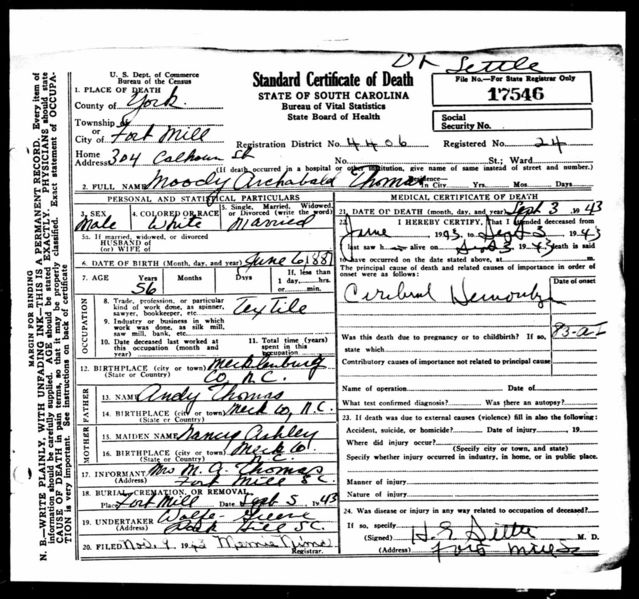 Dr Settle
U. S. Dept. of Commerce
Bureau of the Census
Standard Certificate of Death
STATE OF SOUTH CAROLINA
Bureau of Vital Statistics
State Board of Health
File No.—For State Registrar Only
17546
Social
Security No.
1. PLACE OF DEATH
County of York
Township of
or
City of Fort Mill
Registration District No. 4406
Registered No. 24
Home Address 304 Calhoun St
No. St.; Ward
(If death occurred in a hospital or other institution, give name of same instead of street and number.)
2. FULL NAME Moody Archabald Thomas
Residence In City Yrs. Mos. Days
PERSONAL AND STATISTICAL PARTICULARS
3. SEX
Male
4. COLORED OR RACE
White
5. Single, Married, Widowed, or Divorced (write the word)
Married
5a. If married, widowed, or divorced
HUSBAND of
(or) WIFE of
6. DATE OF BIRTH (Month, day, and year) June 6 1887
7. AGE Years Months Days If, less than 1 day, hrs. or min.
56
OCCUPATION
8. Trade, profession, or particular kind of work done, as spinner, sawyer, bookkeeper, etc.
Textile
9. Industry or business in which work was done, as silk mill, saw mill, bank, etc.
10. Date deceased last worked at this occupation (month and year)
11. Total time (years) spent in this occupation
12. BIRTHPLACE (city or town) Mecklenburg
(State or Country) Co, N.C.
FATHER
13. NAME Andy Thomas
14. BIRTHPLACE (city or town) Meck Co, N.C.
(State or Country)
MOTHER
15. MAIDEN NAME Nancy Ashley
16. BIRTHPLACE (city or town) Meck Co
(State or Country) N.C.
17. INFORMANT Mrs M. A. Thomas
(Address) Fort Mill S.C.
18. BURIAL, CREMATION, OR REMOVAL.
Place Fort Mill Sept 5 1943
19. UNDERTAKER Wolfe
(Address) Rock Hill S.C.
20. FILED Nov. 1943
Registrar.
MEDICAL CERTIFICATE OF DEATH
21. DATE OF DEATH (month, day, and year) Sept 3 1943
22. I HEREBY CERTIFY, That I attended deceased from
June 1943 to Sept 3 1943
I last saw h alive on Sept 3 1943 death is said
to have occurred on the date stated above, at m.
The principal cause of death and related causes of importance in order of onset were as follows:
Date of onset
Cerebral
83-a-I
Was this death due to pregnancy or to childbirth? If so,
state which
Contributory causes of importance not related to principal cause
Name of operation Date of
What test confirmed diagnosis? Was there an autopsy?
23. If death was due to external causes (violence) fill in also the following:
Accident, suicide, or homicide? Date of injury , 19
Where did injury occur?
(Specify city or town, and state)
Specify whether injury occurred in industry, in home, or in public place.
Manner of injury
Nature of injury
24. Was disease or injury in any way related to occupation of deceased?
If so, specify
(Signed) M. D.
(Address) Fort Mill SC
MARGIN FOR BINDING
N. B.—WRITE PLAINLY, WITH UNFADING INK—THIS IS A PERMANENT RECORD. Every item of
information should be carefully supplied. AGE should be stated EXACTLY. PHYSICIANS should state
CAUSE OF DEATH in plain terms, so that it may be properly classified. Exact statement of OCCUPA-
TION is very important. See instructions on back of certificate